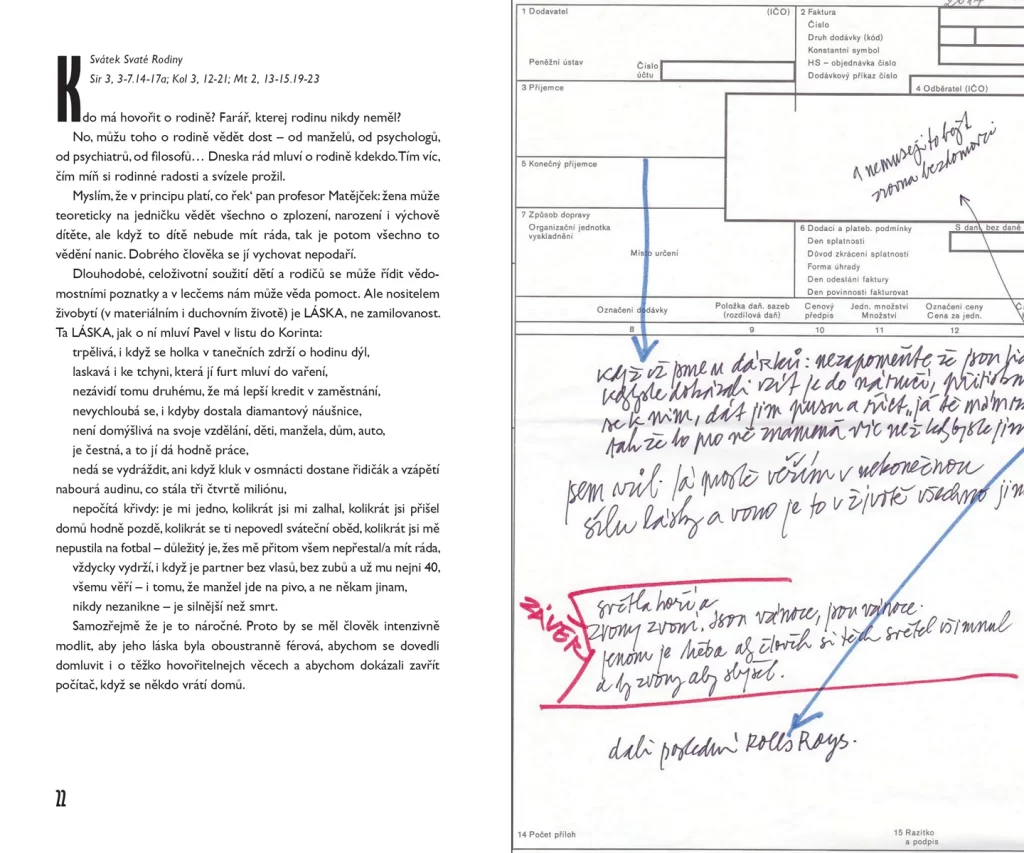 Svátek Svaté Rodiny
Sir 3, 3-7.14-17a; Kol 3, 12-21; Mt 2, 13-15.19-23
Kdo má hovořit o rodině? Farář, kterej rodinu nikdy neměl?
No, můžu toho o rodině vědět dost – od manželů, od psychologů,
od psychiatrů, od filosofů… Dneska rád mluví o rodině kdekdo. Tím víc,
čím míň si rodinné radosti a svízele prožil.
Myslím, že v principu platí, co řek‘ pan profesor Matějček: žena může
teoreticky na jedničku vědět všechno o zplození, narození i výchově
dítěte, ale když to dítě nebude mít ráda, tak je potom všechno to
vědění nanic. Dobrého člověka se jí vychovat nepodaří.
Dlouhodobé, celoživotní soužití dětí a rodičů se může řídit vědo-
mostními poznatky a v lecčems nám může věda pomoct. Ale nositelem
živobytí (v materiálním i duchovním životě) je LÁSKA, ne zamilovanost.
Ta LÁSKA, jak o ní mluví Pavel v listu do Korinta:
trpělivá, i když se holka v tanečních zdrží o hodinu dýl,
laskavá i ke tchyni, která jí furt mluví do vaření,
nezávidí tomu druhému, že má lepší kredit v zaměstnání,
nevychloubá se, i kdyby dostala diamantový náušnice,
není domýšlivá na svoje vzdělání, děti, manžela, dům, auto,
je čestná, a to jí dá hodně práce,
nedá se vydráždit, ani když kluk v osmnácti dostane řidičák a vzápětí
nabourá audinu, co stála tři čtvrtě miliónu,
nepočítá křivdy: je mi jedno, kolikrát jsi mi zalhal, kolikrát jsi přišel
domů hodně pozdě, kolikrát se ti nepovedl sváteční oběd, kolikrát jsi mě
nepustila na fotbal – důležitý je, žes mě přitom všem nepřestal/a mít ráda,
vždycky vydrží, i když je partner bez vlasů, bez zubů a už mu nejni 40,
všemu věří – i tomu, že manžel jde na pivo, a ne někam jinam,
nikdy nezanikne – je silnější než smrt.
Samozřejmě že je to náročné. Proto by se měl člověk intenzivně
modlit, aby jeho láska byla oboustranně férová, abychom se dovedli
domluvit i o těžko hovořitelnejch věcech a abychom dokázali zavřít
počítač, když se někdo vrátí domů.
22
1 Dodavatel (IČO)
Peněžní ústav
Číslo
účtu
2 Faktura
Číslo
Druh dodávky (kód)
Konstantní symbol
HS – objednávka číslo
Dodávkový příkaz číslo
3 Příjemce
4 Odběratel (IČO)
a nemusejí to bejt
zrovna bezdomovci
5 Konečný příjemce
7 Způsob dopravy
Organizační jednotka
vyskladnění
Místo určení
6 Dodací a plateb. podmínky
S daní, bez daně
Den splatnosti
Důvod zkrácení splatnosti
Forma úhrady
Den odeslání faktury
Den povinnosti fakturovat
Označení dodávky
Položka daň. sazeb
(rozdílová daň)
Cenový
předpis
Jedn. množství
Množství
Označení ceny
Cena za jedn.
8 9 10 11 12
když už jsme u dárků: nezapomeňte, že json
kdybyste dokázali vzít je do náručí, přitisknou
se k nim, dát jim pusu a říct „já tě mám
takže to pro ně znamená víc než kdybyste jim
jsem vůl. Já prostě věřím v nekonečnou
sílu lásky a vono je to v životě všechno jin
ZÁVĚR
světla hoří a
zvony zvoní. Json vánoce, jsou vánoce.
jenom je třeba aby člověk si těch světel všimnul
a ty zvony aby slyšel.
dali poslední Rolls Roys.
14 Počet příloh
15 Razítko
a podpis